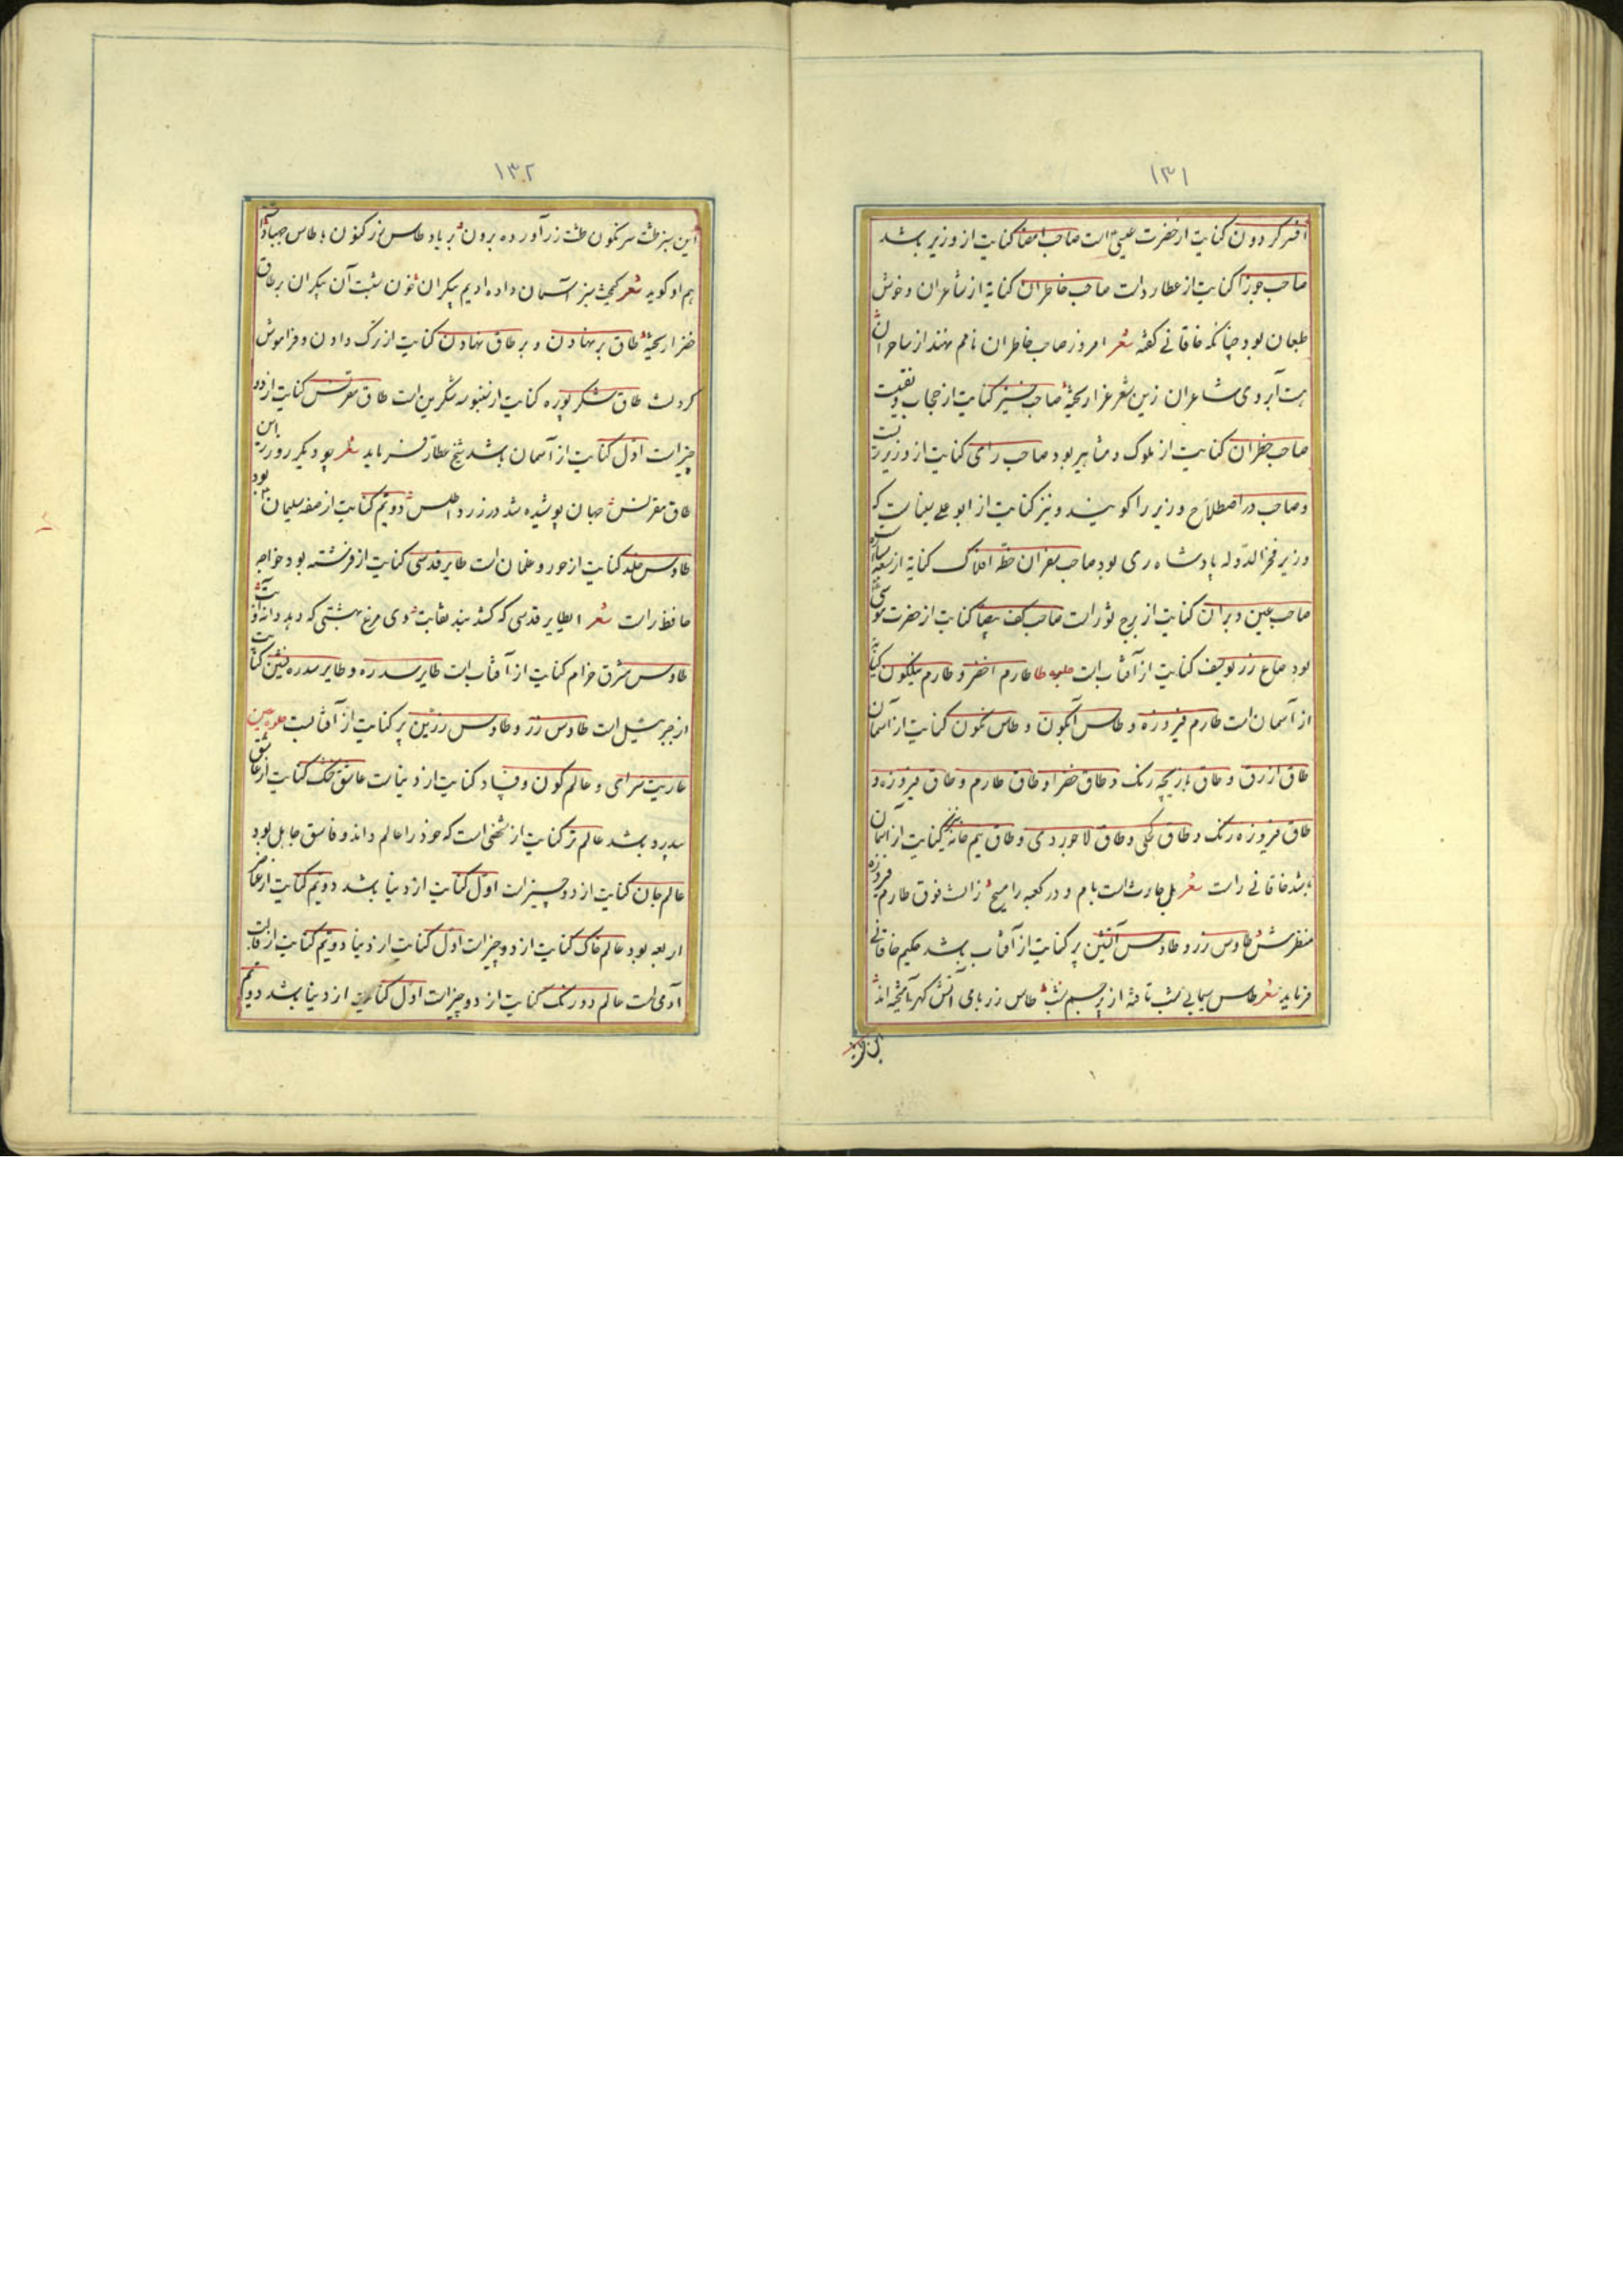 ۱۳۱
افسر کردون کنایت از حضرت عیسی است صاحب امضا کنایت از وزیر باشد
صاحب جوزا کنایت از عطارد است صاحب خاطران کنایة از شاعران و خوش
طبعان بود چنانکه خاقانی گفته شعر امروز صاحب خاطران نامم نهند از ساحران
هست آبروی شاعران زین شعر غرا ریخته صاحب کنایت از حجاب و
صاحب خطران کنایت از ملوک و مشاهیر بود صاحب رای کنایت از وزیر
و صاحب در اصطلاح وزیر را گویند و نیز کنایت از ابو علی سیناست که
وزیر فخر الدوله پادشاه ری بود صاحب سفران خطه افلاک کنایة از سبعه سیاره
صاحب عین دبران کنایت از برج ثور است صاحب کف بیضا کنایت از حضرت موسی
بود صاع زر یوسف کنایت از آفتاب است طا طارم اخضر و طارم نیلکون کنایت
از آسمان است طارم فیروزه و طاس آبکون و طاس نکون کنایت از آسمان
طاق ازرق و طاق بازیچه رنک و طاق خضرا و طاق طارم و طاق فیروزه و
طاق فیروزه رنک و طاق کحلی و طاق لاجوردی و طاق نیم خانه کنایت از آسمان
باشد خاقانی راست شعر بل حارث است بام و در کعبه را مسیح زانست فوق طارم فیروزه
منظرش طاوس زر و طاوس آتشین پر کنایت از آفتاب باشد حکیم خاقانی
فرماید شعر طاس سیمابی شب تافته از پرچم شب طاس زر بامی آتش گهر آمیخته اند
۱۳۲
این سبز طشت سرنکون طشت زر آورده برون بر یاد طاس زر کنون با طاس
هم او کوید شعر سبز آسمان داده ادیم بیکران خون آن بیکران بر طاق
خضرا ریخته طاق بر نهادن و بر طاق نهادن کنایت از ترک دادن و فراموش
کرد ن است طاق شکر بوره کنایت از سنبوسه شکرین است طاق مقرنس کنایت از دو
چیز است اول کنایت از آسمان باشد شیخ عطار فرماید شعر چو دیگر روز این
طاق مقرنس جهان پوشیده شد در زرد اطلس دویم کنایت از صفه سلیمان بود
طاوس خلد کنایت از حور و غلمان است طایر قدسی کنایت از فرشته بود خواجه
حافظ راست شعر ای طایر قدسی که کشد بند نقابت وی مرغ بهشتی که دهد دانه و آبت
طاوس مشرق خرام کنایت از آفتاب است طایر سدره و طایر سدره نشین کنایت
از جبرئیل است طاوس زر و طاوس زرین پر کنایت از آفتابست عین
عاریت سرای و عالم کون و فساد کنایت از دنیاست عاشق کنایت از عاشق
بیدرد باشد عالم تر کنایت از شخصی است که خود را عالم داند و فاسق جاهل بود
عالم جان کنایت از دو چیز است اول کنایت از دنیا باشد دویم کنایت از عناصر
اربعه بود عالم خاک کنایت از دو چیز است اول کنایت از دنیا دویم کنایت از قالب
آدمی است عالم دو رنک کنایت از دو چیز است اول کنایت از دنیا باشد دویم